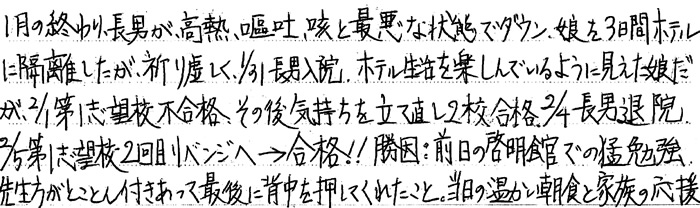 1月の終わり、長男が、高熱、嘔吐、咳と最悪な状態でダウン。娘を3日間ホテル
に隔離したが、祈り虚しく、1/31長男入院。ホテル生活を楽しんでいるように見えた娘だ
が、2/1第1志望校不合格、その後気持ちを立て直し2校合格。2/4長男退院。
2/5第1志望校2回目リベンジへ→合格!! 勝因:前日の啓明館での猛勉強。
先生方がとことん付きあって最後に背中を押してくれたこと。当日の温かい朝食と家族の応援